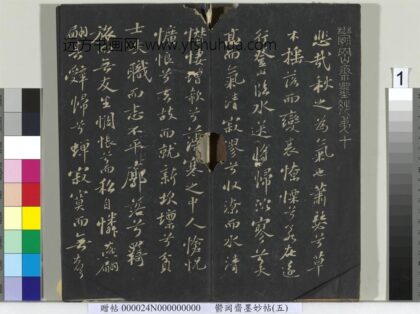 远方书画网-www.yfshuhua.com
鬱岡齋墨妙
十
悲哉秋之為氣也蕭瑟兮草
木搖落而變衰憭慄兮若在遠
行登山臨水送將歸泬寥兮天
高而氣清寂寥兮收潦而水清
憯悽增欷兮薄寒之中人愴怳
懭悢兮去故而就新坎壈兮貧
士失職而志不平廓落兮羈
旅而無友生惆悵兮而私自憐燕翩
翩其辭歸兮蟬寂莫而無聲
1
贈帖 000024N000000000 鬱岡齋墨妙帖(五)